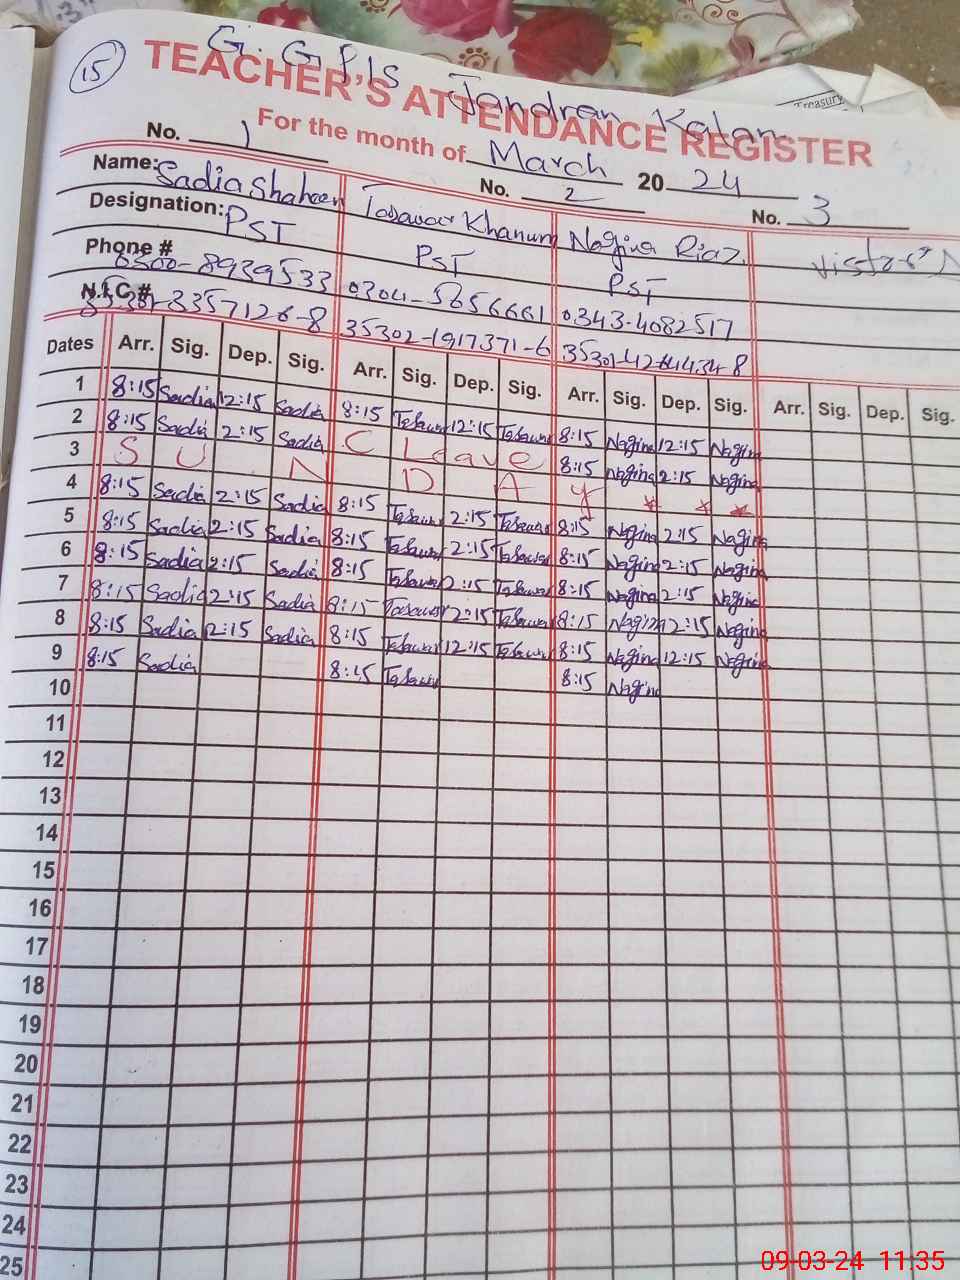 15
G. G P/S Jandran Kalan
TEACHER'S ATTENDANCE REGISTER
Treasury
For the month of March 20 24
No. 1 No. 2 No. 3
Name: Sadia Shaheen Tasawar Khanum Nagina Riaz
Designation: PST PST PST
Phone # 0300-8939533 0304-5656661 0343-4082517
N.I.C # 35301-3357126-8 35302-1917371-6
Dates Arr. Sig. Dep. Sig. Arr. Sig. Dep. Sig. Arr. Sig. Dep. Sig. Arr. Sig. Dep. Sig.
1 8:15 Sadia 12:15 Sadia 8:15 Tasawar 12:15 Tasawar 8:15 Nagina 12:15 Nagina
2 8:15 Sadia 2:15 Sadia C Leave 8:15 Nagina 2:15 Nagina
3 S U N D A Y * * *
4 8:15 Sadia 2:15 Sadia 8:15 Tasawar 2:15 Tasawar 8:15 Nagina 2:15 Nagina
5 8:15 Sadia 2:15 Sadia 8:15 Tasawar 2:15 Tasawar 8:15 Nagina 2:15 Nagina
6 8:15 Sadia 2:15 Sadia 8:15 Tasawar 2:15 Tasawar 8:15 Nagina 2:15 Nagina
7 8:15 Sadia 2:15 Sadia 8:15 Tasawar 2:15 Tasawar 8:15 Nagina 2:15 Nagina
8 8:15 Sadia 12:15 Sadia 8:15 Tasawar 12:15 Tasawar 8:15 Nagina 12:15 Nagina
9 8:15 Sadia 8:15 Tasawar 8:15 Nagina
10
11
12
13
14
15
16
17
18
19
20
21
22
23
24
25
09-03-24 11:35